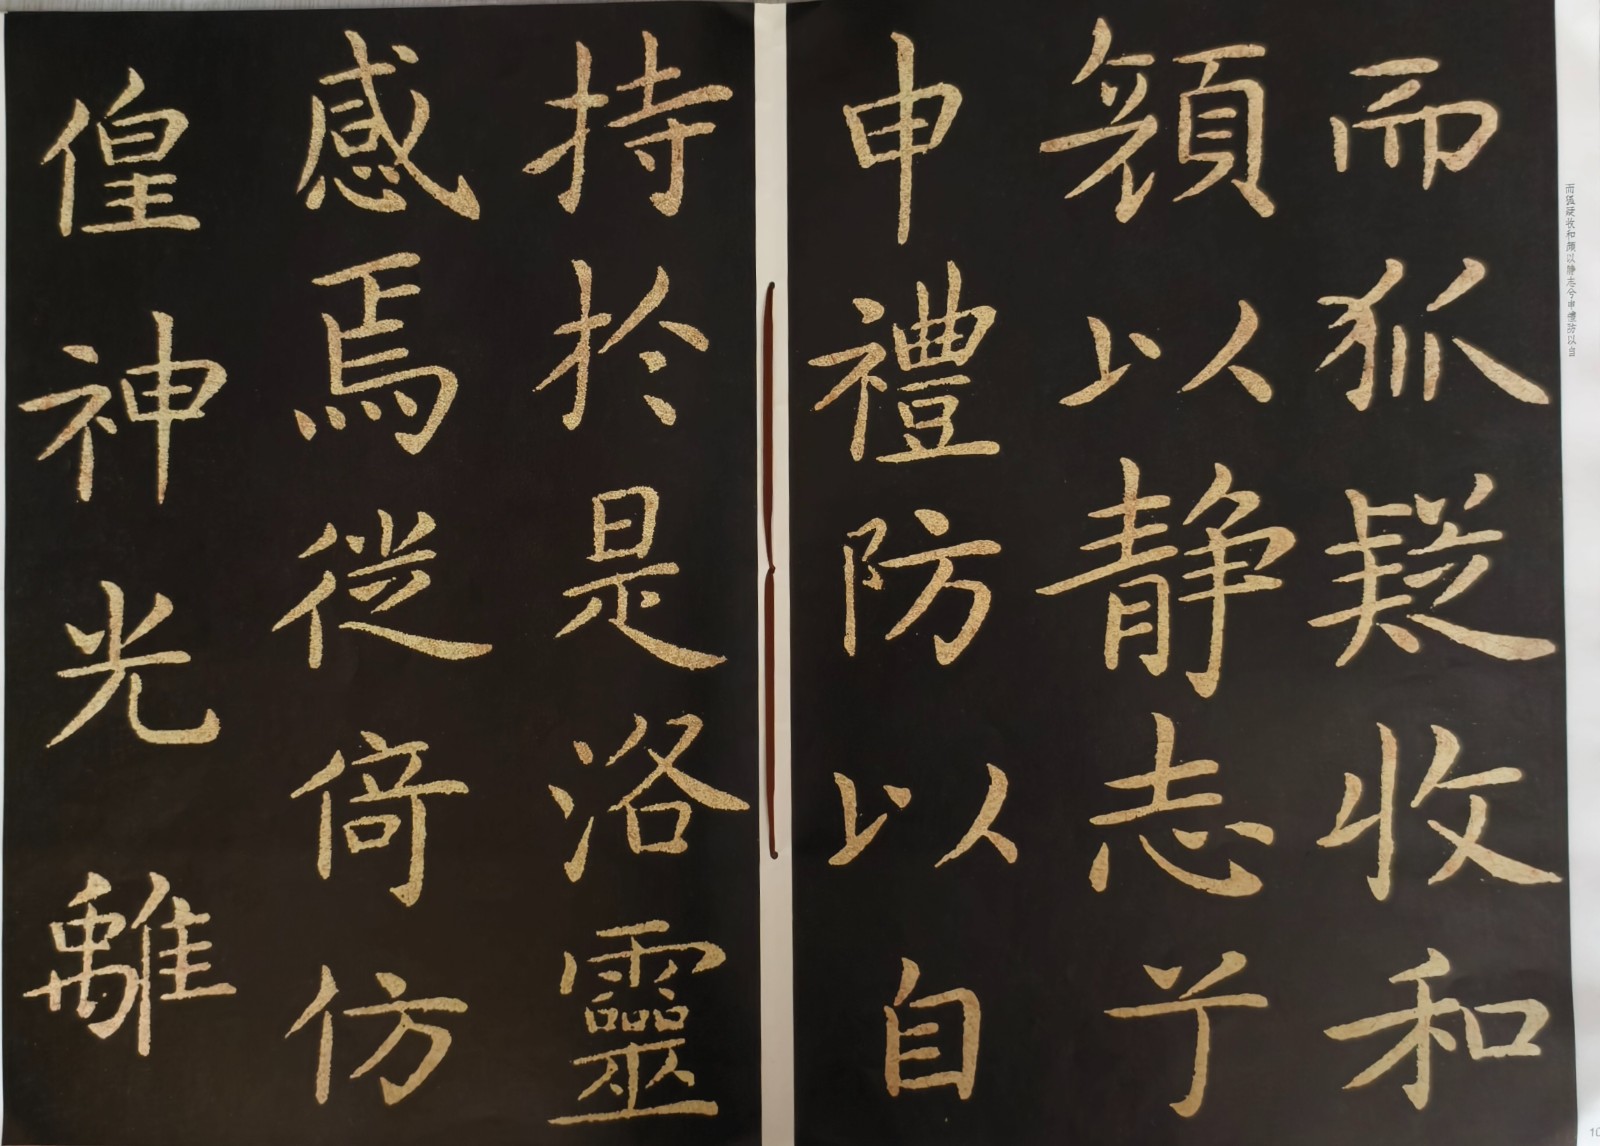 而狐疑收和
顏以静志兮
申禮防以自
持於是洛靈
感焉徙倚仿
偟神光離
而狐疑收和顏以静志兮申禮防以自